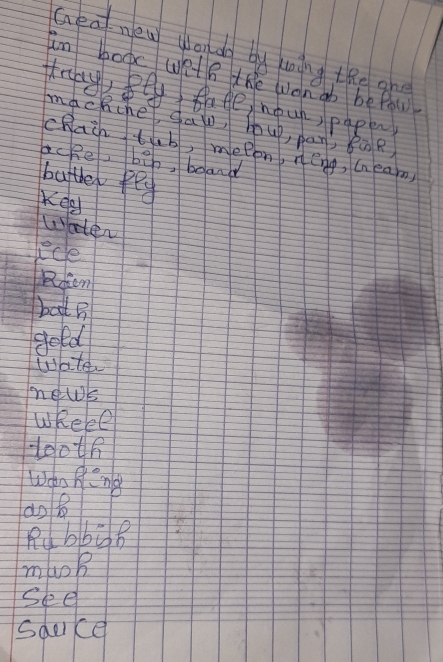 Creat new words by using the one
in box with the words below.
tray, fly, fall, noun, paper,
machine, saw, bow, pan, fish,
chain, tub, melon, ring, cream,
ache, bin, board
butter fly
Key
Water
ice
Rain
bath
gold
Water
news
Wheel
tooth
washing
ash
Rubbish
mush
See
Sauce